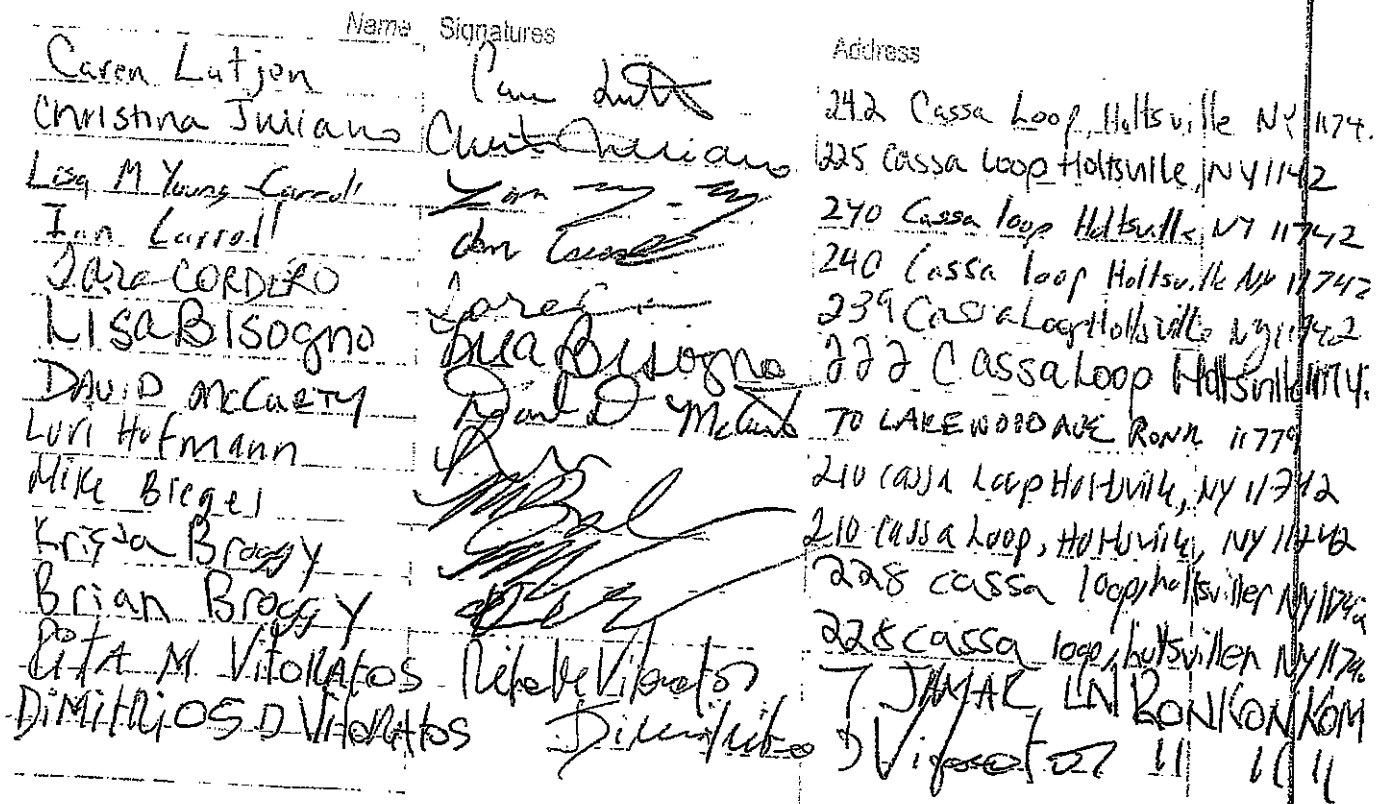 Name Signatures Address
Caren Lutjen 242 Cassa Loop, Holtsville NY 1174.
Christina Juliano 225 Cassa Loop Holtsville, NY 11742
Lisa M Young-Carroll 240 Cassa loop Holtsville NY 11742
Ian Carroll 240 Cassa loop Holtsville NY 11742
CORDERO 239 Cassa Loop Holtsville NY 11742
Lisa Bisogno Lisa Bisogno 222 Cassa Loop Holtsville 1174.
DAVID McCARTY David D McCarty 70 LAKEWOOD AVE RONK 11779
Lori Hofmann 210 Cassa Loop Holtsville, NY 11742
Mike Biegel 210 Cassa Loop, Holtsville, NY 11742
Krista Broggy 228 cassa loop, holtsville NY
Brian Broggy 228 cassa loop, holtsville NY
RITA M VITORATOS 7 JAMAR LN RONKONKOM
DIMITRIOS D VITORATOS Dimitrios D Vitoratos 11 11 11